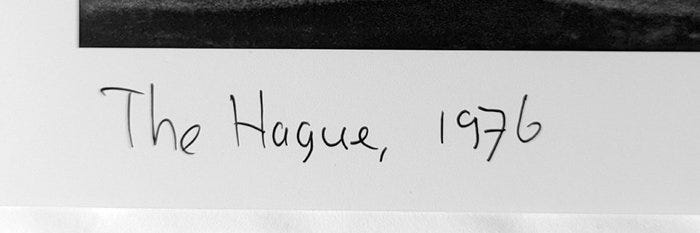 The Hague, 1976